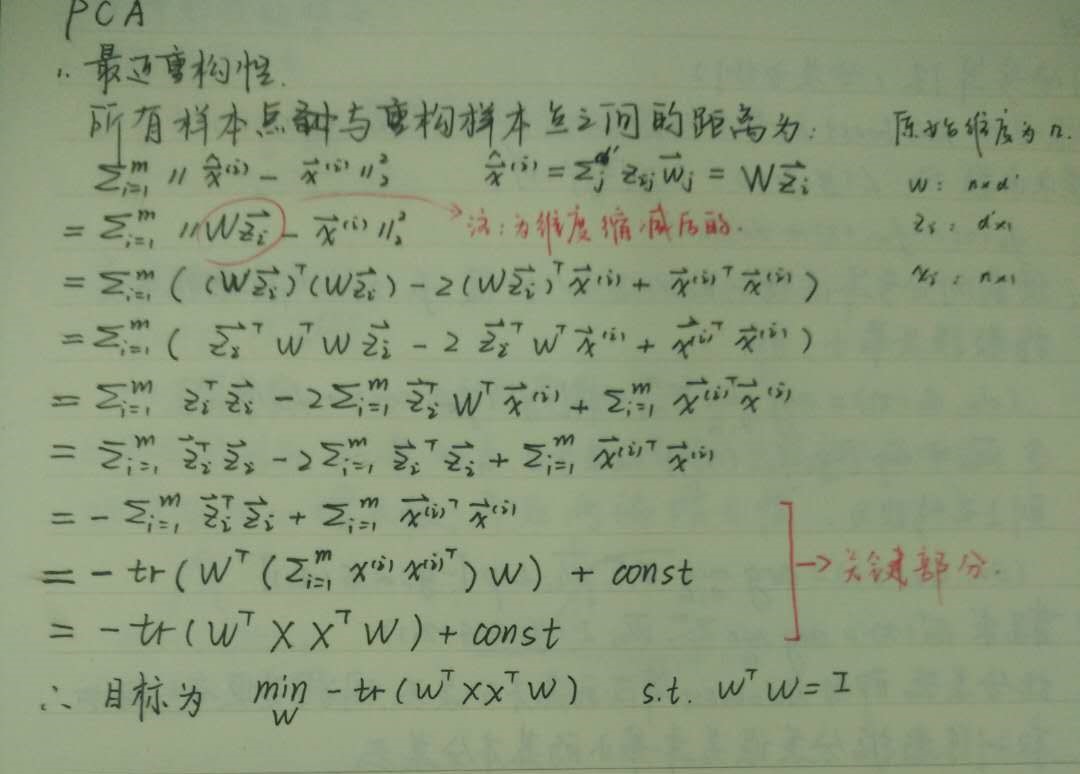 PCA
1. 最近重构性.
所有样本点与重构样本点之间的距离为: 原始维度为 n.
Σ_{i=1}^m // \hat{\vec{x}}^{(i)} - \vec{x}^{(i)} //_2^2    \hat{\vec{x}}^{(i)} = Σ_j^{d'} z_{ij} \vec{w}_j = W\vec{z_i}    W: n×d'
= Σ_{i=1}^m // W\vec{z_i} - \vec{x}^{(i)} //_2^2 → 注: 为维度缩减后的.    z_i: d'×1
= Σ_{i=1}^m ( (W\vec{z_i})^T (W\vec{z_i}) - 2(W\vec{z_i})^T \vec{x}^{(i)} + \vec{x}^{(i)T} \vec{x}^{(i)} )    x_i: n×1
= Σ_{i=1}^m ( \vec{z_i}^T W^T W \vec{z_i} - 2 \vec{z_i}^T W^T \vec{x}^{(i)} + \vec{x}^{(i)T} \vec{x}^{(i)} )
= Σ_{i=1}^m \vec{z_i}^T \vec{z_i} - 2Σ_{i=1}^m \vec{z_i}^T W^T \vec{x}^{(i)} + Σ_{i=1}^m \vec{x}^{(i)T} \vec{x}^{(i)}
= Σ_{i=1}^m \vec{z_i}^T \vec{z_i} - 2Σ_{i=1}^m \vec{z_i}^T \vec{z_i} + Σ_{i=1}^m \vec{x}^{(i)T} \vec{x}^{(i)}
= - Σ_{i=1}^m \vec{z_i}^T \vec{z_i} + Σ_{i=1}^m \vec{x}^{(i)T} \vec{x}^{(i)}
= - tr(W^T (Σ_{i=1}^m x^{(i)} x^{(i)T}) W) + const → 关键部分.
= - tr(W^T X X^T W) + const
∴ 目标为 min_W - tr(W^T X X^T W)    s.t. W^T W = I